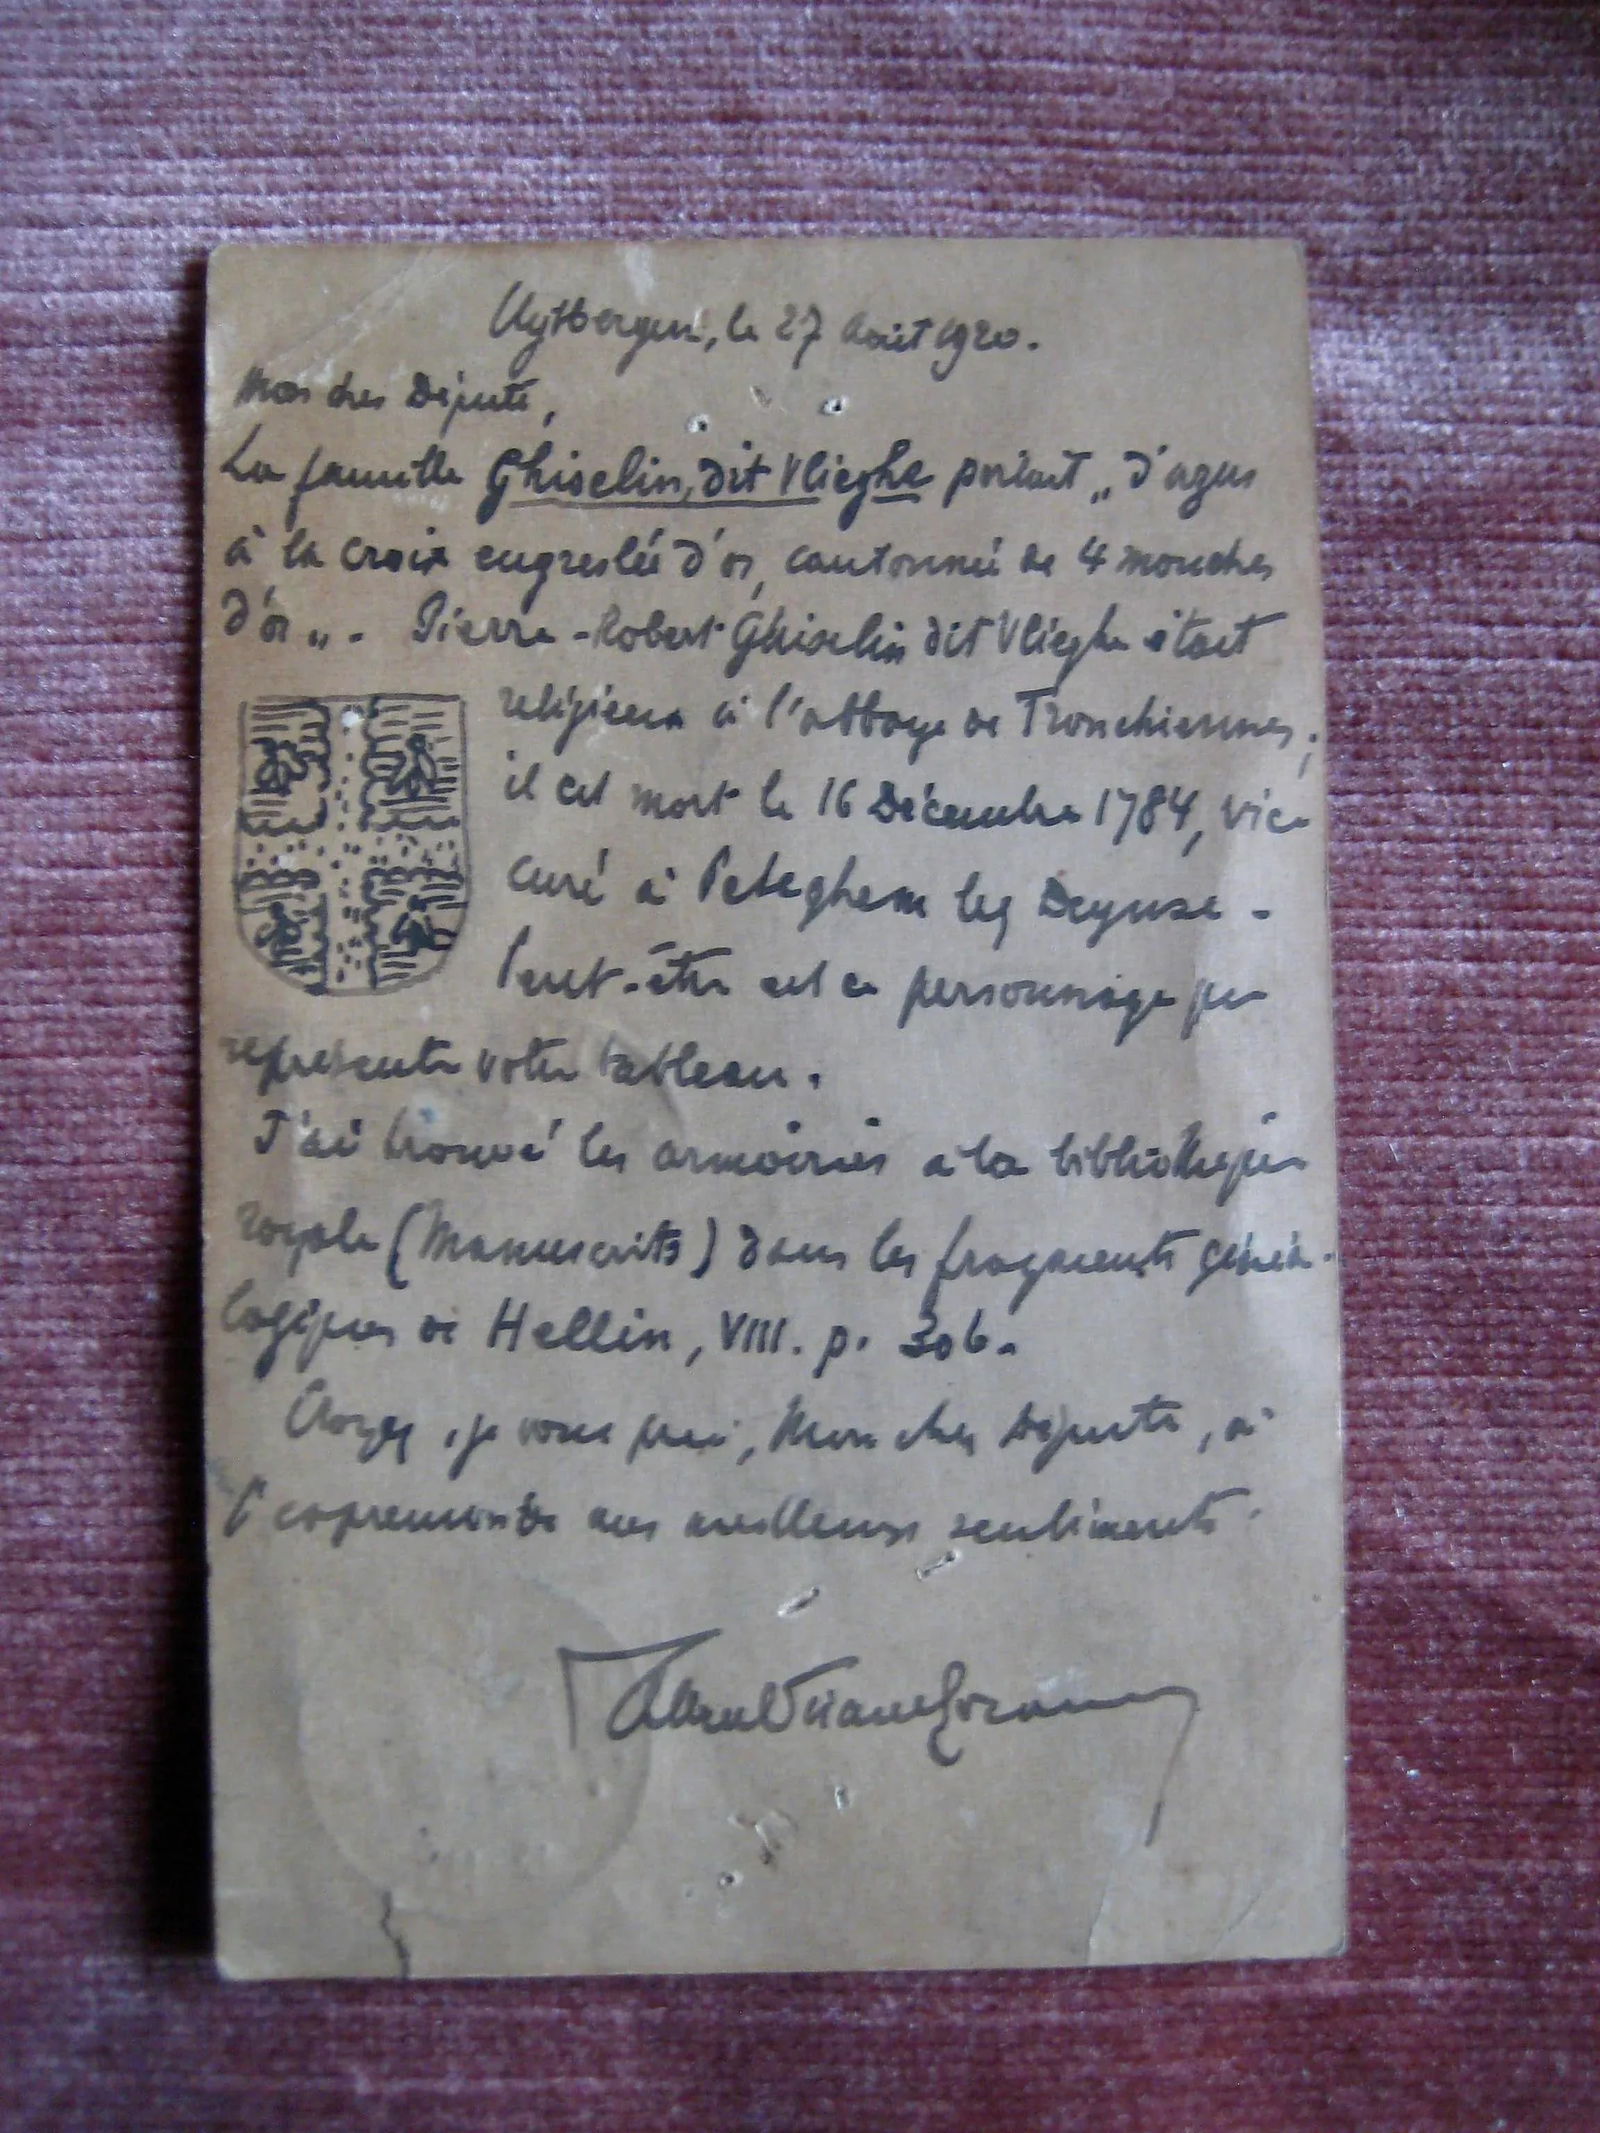 Uytbergen, le 27 Août 1920.
Mon cher Député,
La famille Ghiselin, dit Vlieghe portait „ d'azur
à la croix engreslée d'or, cantonnée de 4 mouches
d'or „ . Pierre-Robert Ghiselin dit Vlieghe était
religieux à l'abbaye de Tronchiennes ;
il est mort le 16 Décembre 1784, vice
curé à Peteghem lez Deynze -
Peut-être est ce personnage que
représente votre tableau.
J'ai trouvé les armoiries à la bibliothèque
royale (Manuscrits) dans les fragments généa-
logiques de Hellin, VIII. p. 306.
Croyez, je vous prie, Mon cher Député, à
l'expression de mes meilleurs sentiments.